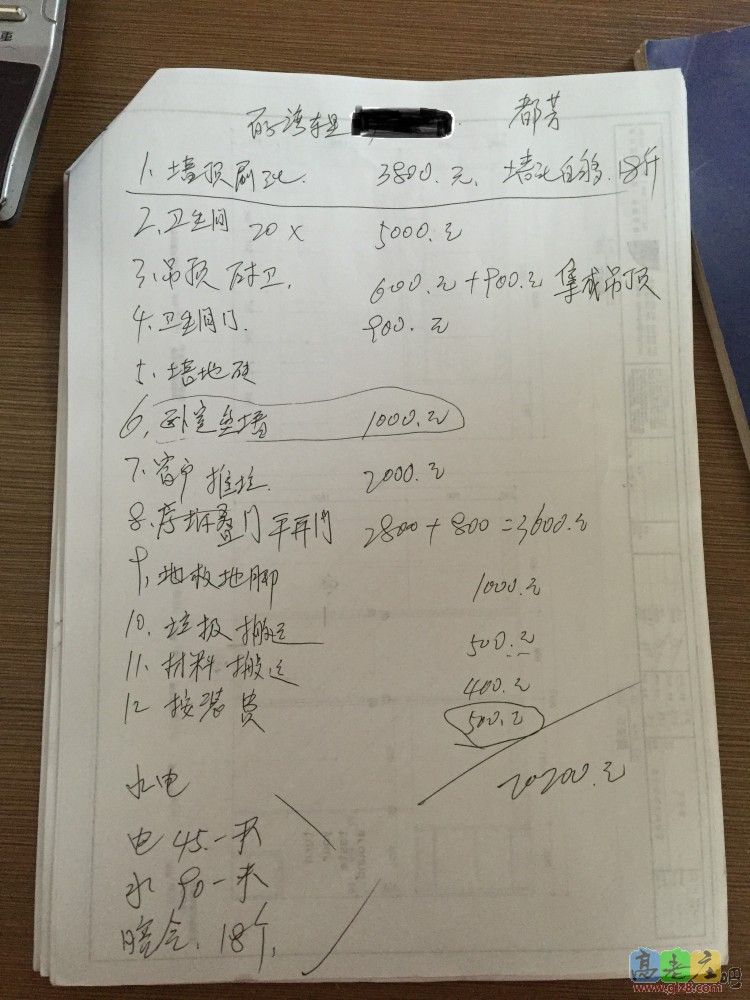 都芳
1、墙顶刷 3800.元、墙 自 18个
2、卫生间 20 X 5000.元
3、吊顶 厨卫、 600.元+900.元 集成吊顶
4、卫生间门. 900.元
5、墙地砖
6、卧室垫墙 1000.元
7、窗户 推拉. 2000.元
8、房 折叠门 平开门 2800+800=3600.元
9、地板地脚 1000.元
10、垃圾搬运 500.元
11、材料搬运 400.元
12 安装费 500.元
20200.元
水电
电 45.一米
水 90一米
暗合、18个、
高老庄吧
www.glz8.com